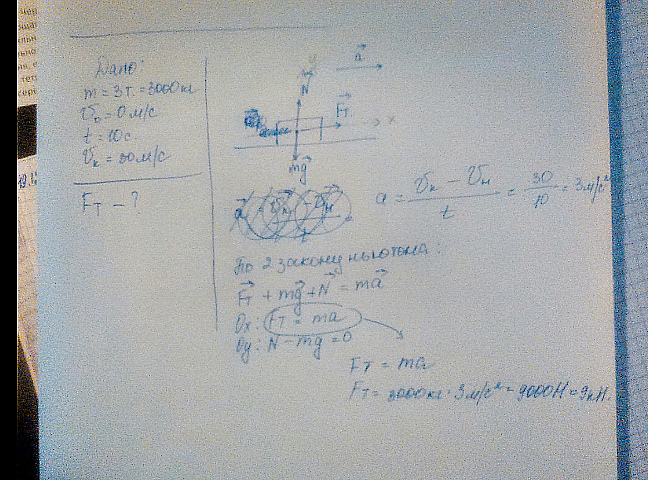 Дано:
m = 3т. = 3000кг
V₀ = 0 м/с
t = 10 с
Vк = 30 м/с
Fт – ?
y
a⃗
N⃗
F⃗т
x
mg⃗
a = Vк Vн / t = 30 / 10 = 3 м/с²
По 2 закону ньютона:
F⃗т + mg⃗ + N⃗ = ma⃗
Ox: Fт = ma
Oy: N – mg = 0
Fт = ma
Fт = 3000кг · 3 м/с² = 9000Н = 9кН.